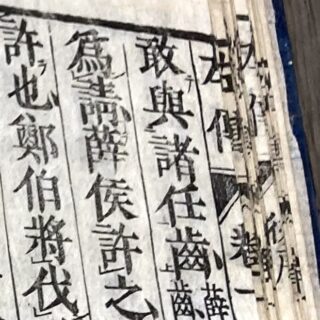 左傳 卷一
敢與諸任齒 薛 齒
為請薛侯許之
許也鄭伯將伐